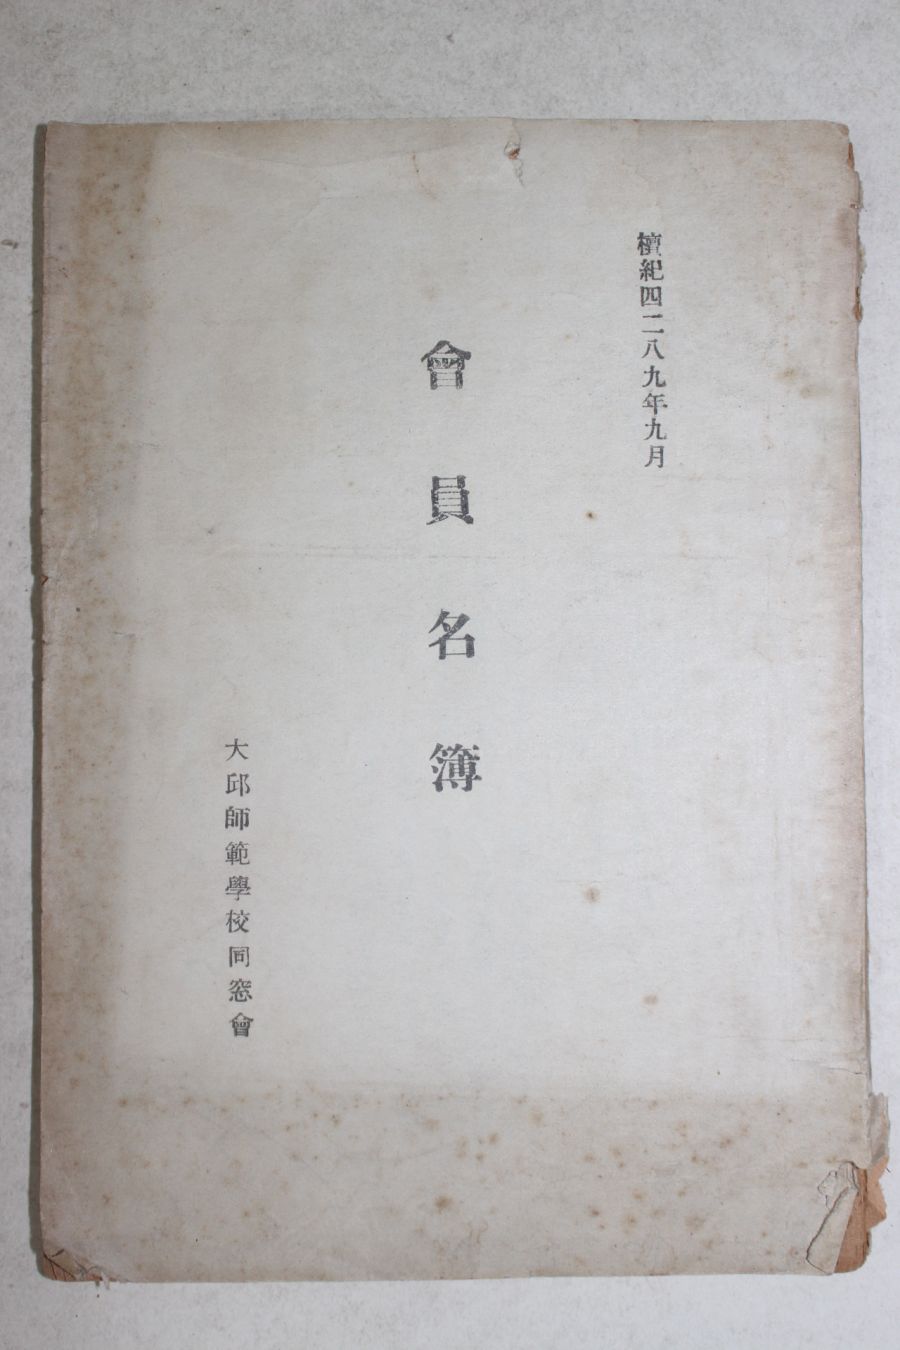 檀紀四二八九年九月
會員名簿
大邱師範學校同窓會